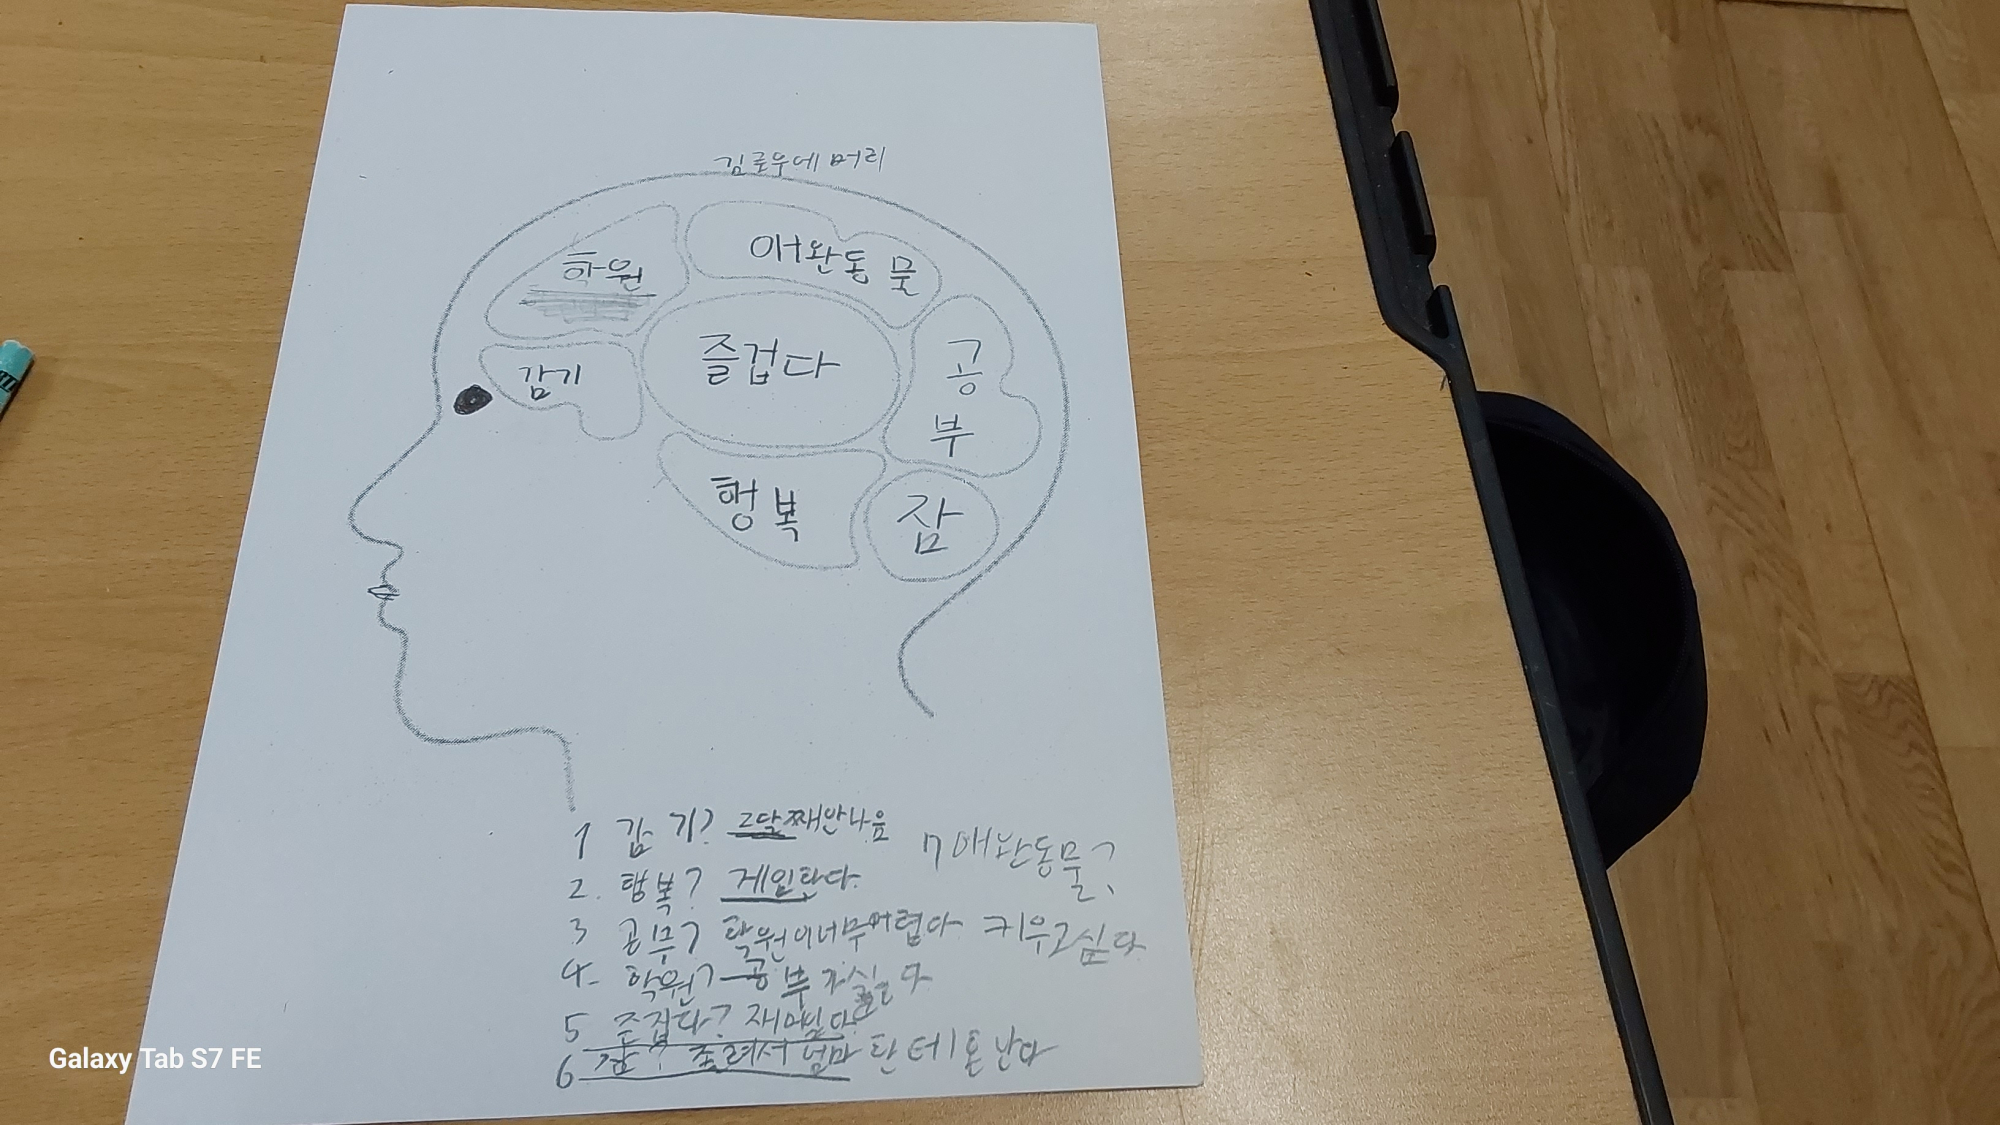 김로우에 머리
학원
애완동물
감기
즐겁다
공
부
행복
잠
1 감기? 2달째안나음
2. 행복? 게임한다.
3 공부? 학원이너무어렵다
4- 학원? 공부 싫다
5 즐겁다? 재미있다
6 잠? 졸려서 엄마 한테 혼난다
7 애완동물?
키우고싶다
Galaxy Tab S7 FE